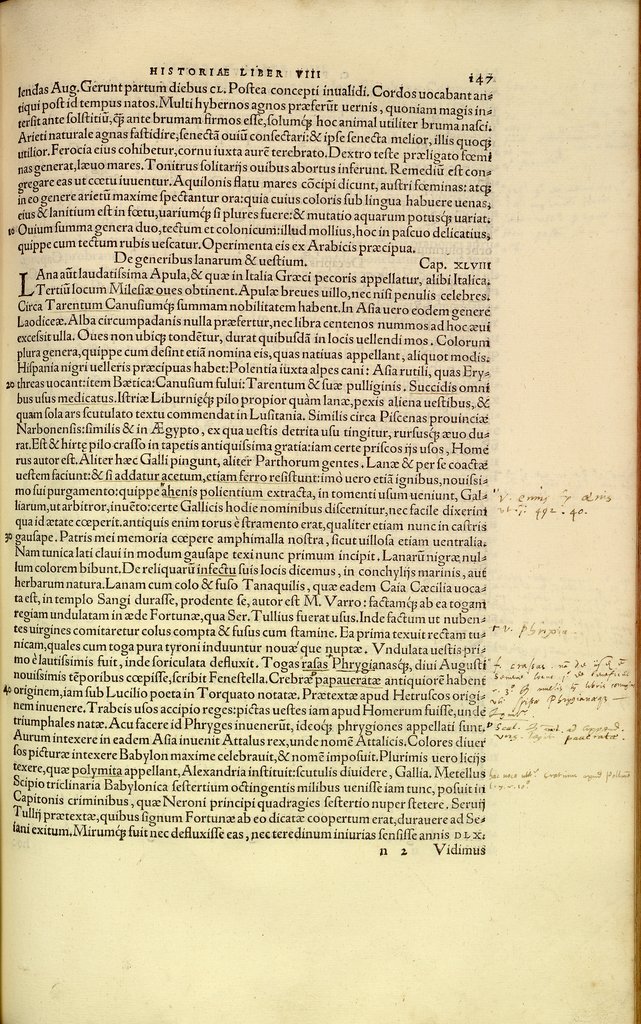 HISTORIAE LIBER VIII 147
lendas Aug. Gerunt partum diebus CL. Postea concepti inualidi. Cordos uocabant an⸗
tiqui post id tempus natos. Multi hybernos agnos præferūt uernis, quoniam magis in⸗
tersit ante solstitiū, q̄ ante brumam firmos esse, solumq; hoc animal utiliter bruma nasci.
Arieti naturale agnas fastidire, senectā ouiū consectari: & ipse senecta melior, illis quoq;
utilior. Ferocia eius cohibetur, cornu iuxta aurē terebrato. Dextro teste præligato fœmi
nas generat, læuo mares. Tonitrus solitarijs ouibus abortus inferunt. Remediū est con⸗
gregare eas ut cœtu iuuentur. Aquilonis flatu mares cōcipi dicunt, austri fœminas: atq;
in eo genere arietū maxime spectantur ora: quia cuius coloris sub lingua habuere uenas,
eius & lanitium est in fœtu, uariumq; si plures fuere: & mutatio aquarum potusq; uariat.
10 Ouium summa genera duo, tectum et colonicum: illud mollius, hoc in pascuo delicatius,
quippe cum tectum rubis uescatur. Operimenta eis ex Arabicis præcipua.
De generibus lanarum & uestium. Cap. XLVIII
LAna aūt laudatissima Apula, & quæ in Italia Græci pecoris appellatur, alibi Italica.
Tertiū locum Milesiæ oues obtinent. Apulæ breues uillo, nec nisi penulis celebres.
Circa Tarentum Canusiumq; summam nobilitatem habent. In Asia uero eodem genere
Laodiceæ. Alba circumpadanis nulla præfertur, nec libra centenos nummos ad hoc æui
excessit ulla. Oues non ubiq; tondētur, durat quibusdā in locis uellendi mos. Colorum
plura genera, quippe cum desint etiā nomina eis, quas natiuas appellant, aliquot modis.
Hispania nigri uelleris præcipuas habet: Polentia iuxta alpes cani: Asia rutili, quas Ery⸗
20 threas uocant: item Bætica: Canusium fului: Tarentum & suæ pulliginis. Succidis omni
bus usus medicatus. Istriæ Liburniæq; pilo propior quàm lanæ, pexis aliena uestibus, &
quam sola ars scutulato textu commendat in Lusitania. Similis circa Piscenas prouinciæ
Narbonensis: similis & in Ægypto, ex qua uestis detrita usu tingitur, rursusq; æuo du⸗
rat. Est & hirtę pilo crasso in tapetis antiquissima gratia: iam certe priscos ijs usos, Home
rus autor est. Aliter hæc Galli pingunt, aliter Parthorum gentes. Lanæ & per se coactæ
uestem faciunt: & si addatur acetum, etiam ferro resistunt: imò uero etiā ignibus, nouissi⸗
mo sui purgamento: quippe ahenis polientium extracta, in tomenti usum ueniunt, Gal⸗
liarum, ut arbitror, inuēto: certe Gallicis hodie nominibus discernitur, nec facile dixerim
qua id ætate cœperit. antiquis enim torus è stramento erat, qualiter etiam nunc in castris
30 gausape. Patris mei memoria cœpere amphimalla nostra, sicut uillosa etiam uentralia.
Nam tunica lati claui in modum gausape texi nunc primum incipit. Lanarū nigræ nul⸗
lum colorem bibunt. De reliquarū infectu suis locis dicemus, in conchylijs marinis, aut
herbarum natura. Lanam cum colo & fuso Tanaquilis, quæ eadem Caia Cæcilia uoca⸗
ta est, in templo Sangi durasse, prodente se, autor est M. Varro: factamq; ab ea togam
regiam undulatam in æde Fortunæ, qua Ser. Tullius fuerat usus. Inde factum ut nuben⸗
tes uirgines comitaretur colus compta & fusus cum stamine. Ea prima texuit rectam tu⸗
nicam, quales cum toga pura tyroni induuntur nouæq́ue nuptæ. Vndulata uestis pri⸗
mo è lautissimis fuit, inde soriculata defluxit. Togas rasas Phrygianasq;, diui Augusti
nouissimis tēporibus cœpisse, scribit Fenestella. Crebræ papaueratæ antiquiorē habent
40 originem, iam sub Lucilio poeta in Torquato notatæ. Prætextæ apud Hetruscos origi⸗
nem inuenere. Trabeis usos accipio reges: pictas uestes iam apud Homerum fuisse, unde
triumphales natæ. Acu facere id Phryges inuenerūt, ideoq; phrygiones appellati sunt.
Aurum intexere in eadem Asia inuenit Attalus rex, unde nomē Attalicis. Colores diuer
sos picturæ intexere Babylon maxime celebrauit, & nomē imposuit. Plurimis uero licijs
texere, quæ polymita appellant, Alexandria instituit: scutulis diuidere, Gallia. Metellus
Scipio tricliniaria Babylonica sestertium octingentis milibus uenisse iam tunc, posuit in
Capitonis criminibus, quæ Neroni principi quadragies sestertio nuper stetere. Seruij
Tullij prætextæ, quibus signum Fortunæ ab eo dicatæ coopertum erat, durauere ad Se⸗
iani exitum. Mirumq; fuit nec defluxisse eas, nec teredinum iniurias sensisse annis DLX.
n 2 Vidimus
492. 40.
v. phryxia.